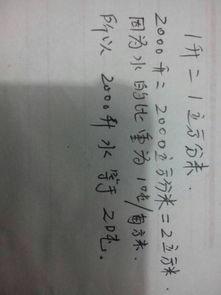 1升=1立方分米.
2000升=2000立方分米=2立方米.
因为水的比重为1吨/每方米.
所以 2000升水等于2吨.